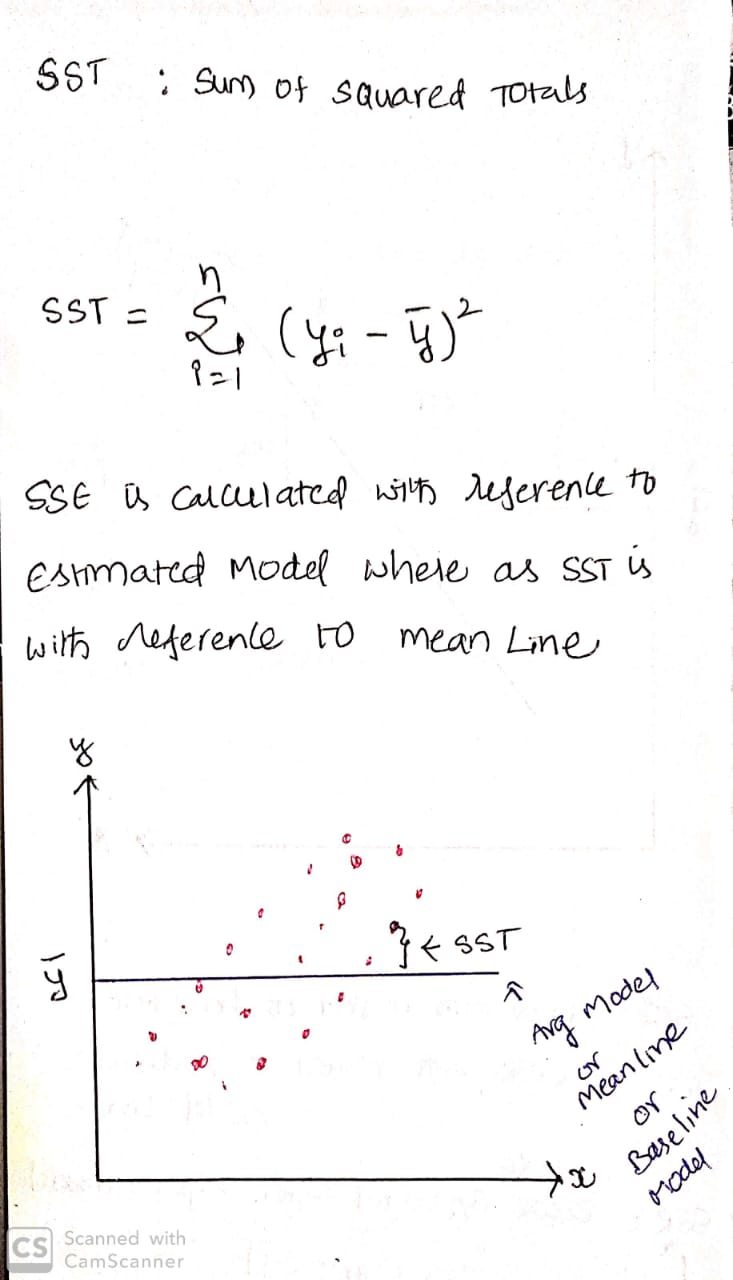 SST : Sum of squared Totals
n
SST = Σ (yi - ȳ)²
i=1
SSE is calculated with reference to
Estimated Model where as SST is
with reference to mean Line
y
} ← SST
ȳ
↑
Avg Model
or
Mean line
or
Baseline
model
x
CS Scanned with
CamScanner